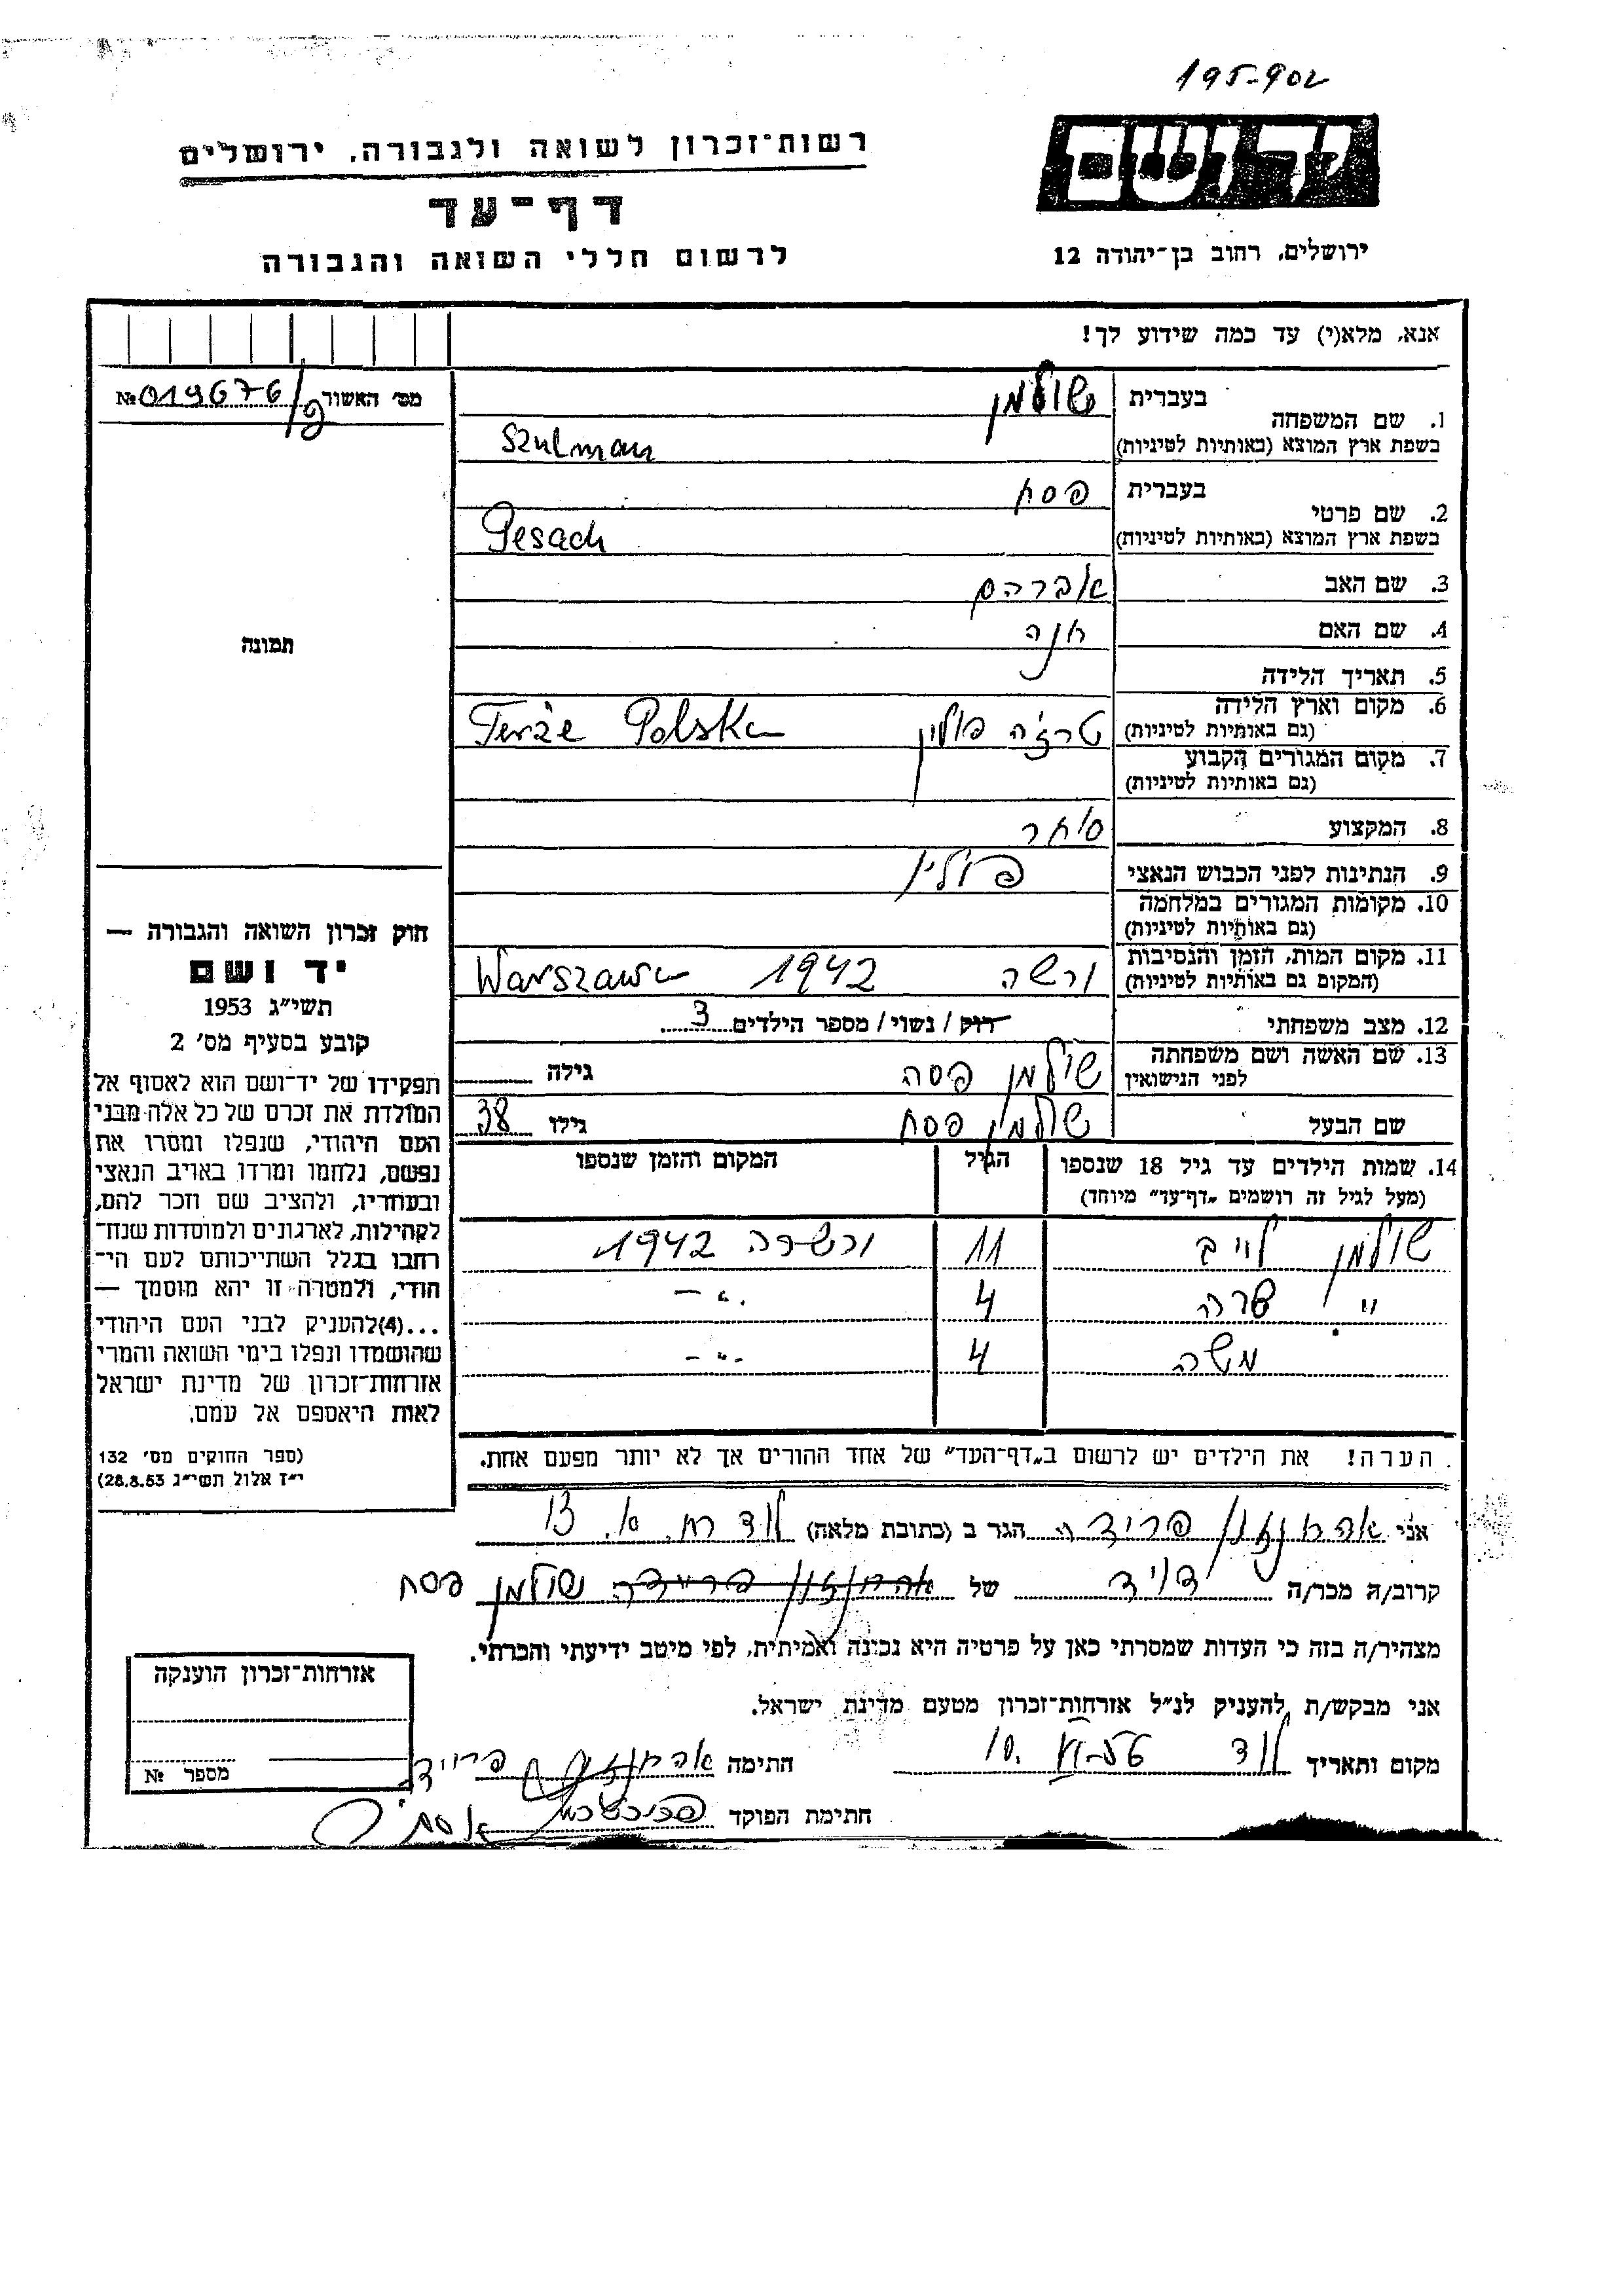 195-902
יד ושם
רשות־זכרון לשואה ולגבורה, ירושלים
דף־עד
לרשום חללי השואה והגבורה
ירושלים, רחוב בן־יהודה 12
אנא, מלא(י) עד כמה שידוע לך!
מס׳ האשור № 019676/פ
1. שם המשפחה בעברית שולמן
בשפת ארץ המוצא (באותיות לטיניות) Szulman
2. שם פרטי בעברית פסח
בשפת ארץ המוצא (באותיות לטיניות) Pesach
3. שם האב אברהם
4. שם האם חנה
5. תאריך הלידה
6. מקום וארץ הלידה
(גם באותיות לטיניות) טרז׳ה פולין Terże Polska
7. מקום המגורים הקבוע
(גם באותיות לטיניות)
8. המקצוע סוחר
9. הנתינות לפני הכבוש הנאצי פולין
10. מקומות המגורים במלחמה
(גם באותיות לטיניות)
11. מקום המות, הזמן והנסיבות
(המקום גם באותיות לטיניות) ורשה 1942 Warszawa
12. מצב משפחתי רוק / נשוי / מספר הילדים 3
13. שם האשה ושם משפחתה
לפני הנישואין שולמן פסה גילה
שם הבעל שולמן פסח גילו 38
14. שמות הילדים עד גיל 18 שנספו הגיל המקום והזמן שנספו
(מעל לגיל זה רושמים „דף־עד” מיוחד)
שולמן לייב 11 ורשה 1942
" שרה 4 -"-
משה 4 -"-
הערה! את הילדים יש לרשום ב„דף־העד” של אחד ההורים אך לא יותר מפעם אחת.
תמונה
חוק זכרון השואה והגבורה —
יד ושם
תשי״ג 1953
קובע בסעיף מס׳ 2
תפקידו של יד־ושם הוא לאסוף אל
המולדת את זכרם של כל אלה מבני
העם היהודי, שנפלו ומסרו את
נפשם, נלחמו ומרדו באויב הנאצי
ובעוזריו, ולהציב שם וזכר להם,
לקהילות, לארגונים ולמוסדות שנח־
רבו בגלל השתייכותם לעם הי־
הודי, ולמטרה זו יהא מוסמך —
...(4)להעניק לבני העם היהודי
שהושמדו ונפלו בימי השואה והמרי
אזרחות־זכרון של מדינת ישראל
לאות היאספם אל עמם.
(ספר החוקים מס׳ 132
י״ז אלול תשי״ג 28.8.53)
אני אהרונזון פרידה הגר ב (כתובת מלאה) לוד רח. 13
קרוב/ה מכר/ה דויד של שולמן פסח
מצהיר/ה בזה כי העדות שמסרתי כאן על פרטיה היא נכונה ואמיתית, לפי מיטב ידיעתי והכרתי.
אני מבקש/ת להעניק לנ״ל אזרחות־זכרון מטעם מדינת ישראל.
מקום ותאריך לוד חתימה
חתימת הפוקד
אזרחות־זכרון הוענקה
מספר №